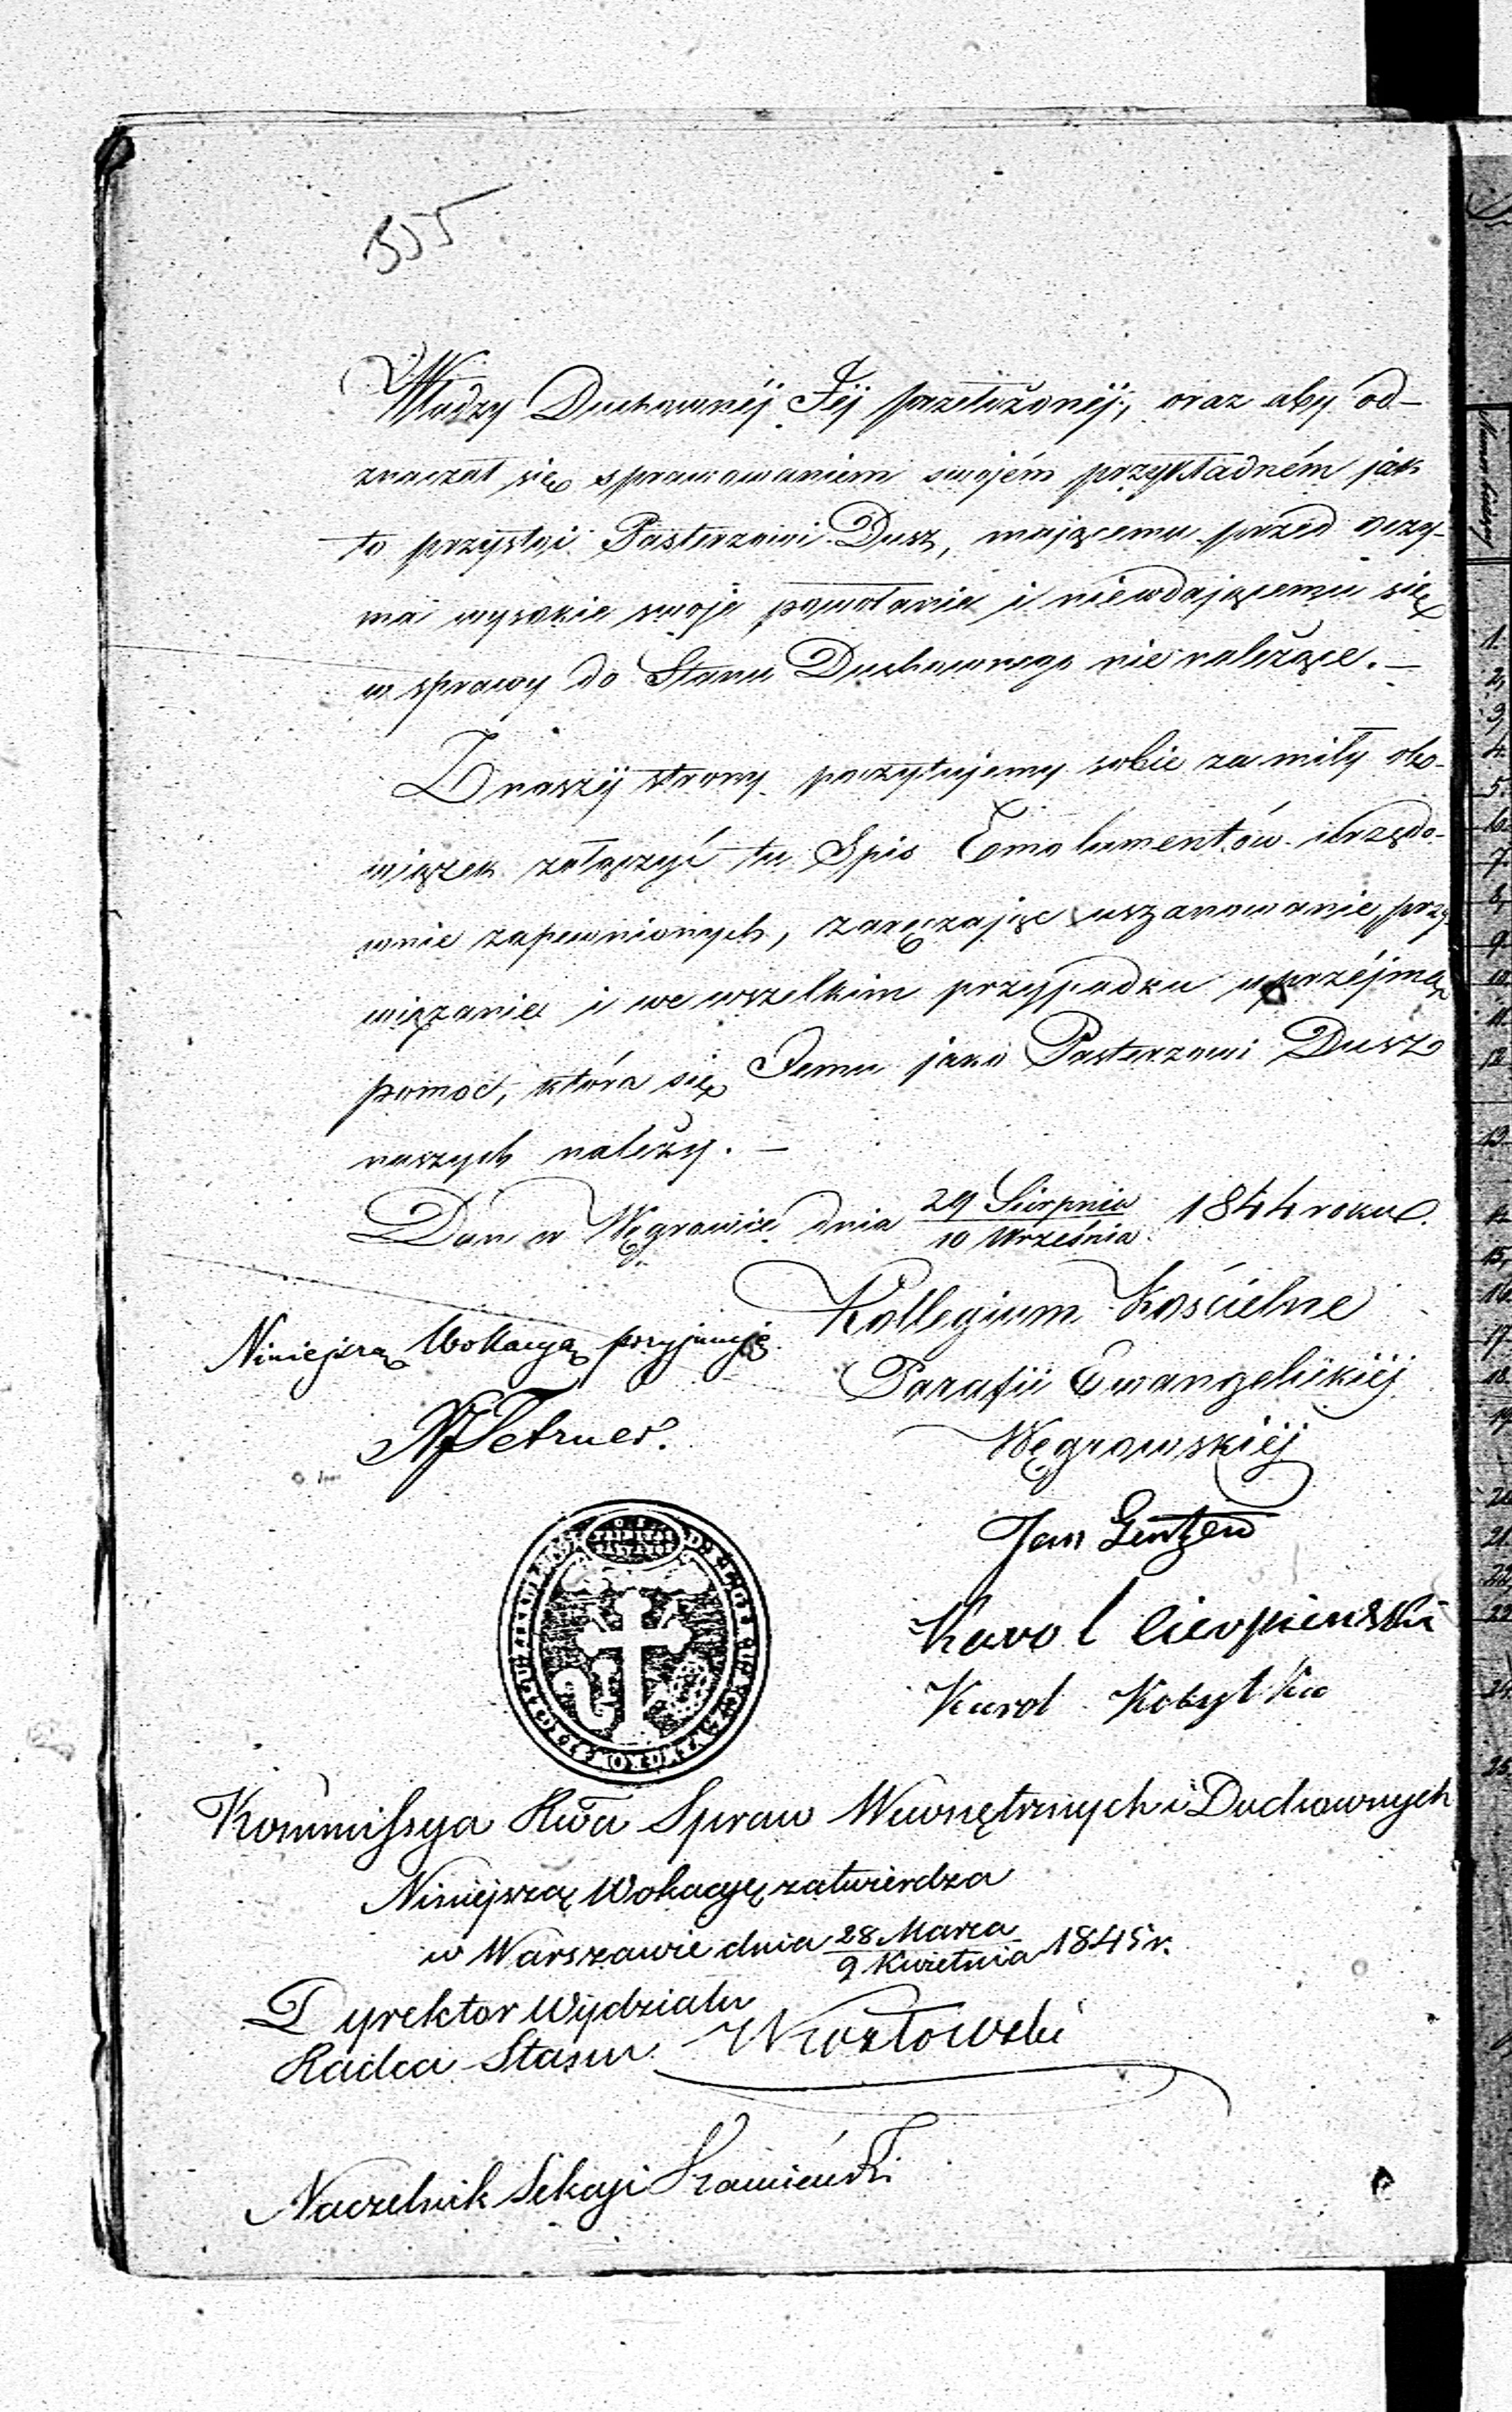 Władzy Duchownéj Jéj przełożonéj, oraz aby od-
znaczał się sprawowaniem swojém przykładném jak
to przystoi Pasterzowi Dusz, mającemu przed oczy-
ma wysokie swoje powołanie i niewdającemu się
w sprawy do Stanu Duchownego nie należące. —
Z naszéj strony poczytujemy sobie za miły obo-
wiązek załączyć tu Spis Emolumentów urzędo-
wnie zapewnionych, zaręczając uszanowanie, przy-
wiązanie i we wszelkim przypadku uprzéjmą
pomoc, która się Jemu jako Pasterzowi Dusz
naszych należy. —
Dan w Węgrowie dnia 29 Sierpnia / 10 Września 1844 roku.
Kollegium Kościelne
Niniejszą Wokacyą przyjmuję
Parafii Ewangelickiéj
Węgrowskiéj
Jan
Karol Cierpienski
Karol Kobyłka
Kommissya Rwa Spraw Wewnętrznych i Duchownych
Niniejszą Wokacyę zatwierdza
w Warszawie dnia 28 Marca / 9 Kwietnia 1845 r.
Dyrektor Wydziału
Radca Stanu Kozłowski
Naczelnik Sekcyi